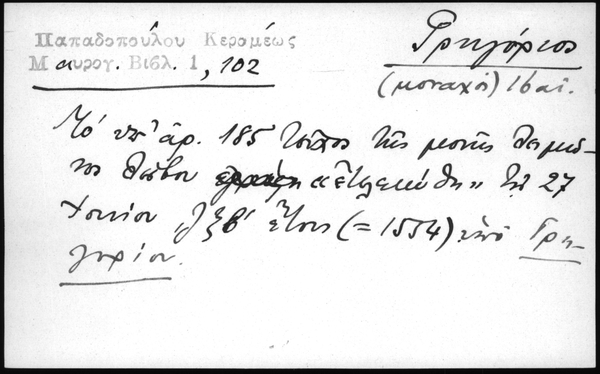 Παπαδοπούλου Κεραμέως
Μαυρογ. Βιβλ. 1, 102
Γρηγόριος
(μοναχός) 16 αἰ.
Τό ὑπ' ἀρ. 185 τεῦχος τῆς μονῆς
"ἐτελειώθη" τῇ 27
Ἰουνίου ͵ζξβ' ἔτους (= 1554) ὑπό Γρη-
γορίου.